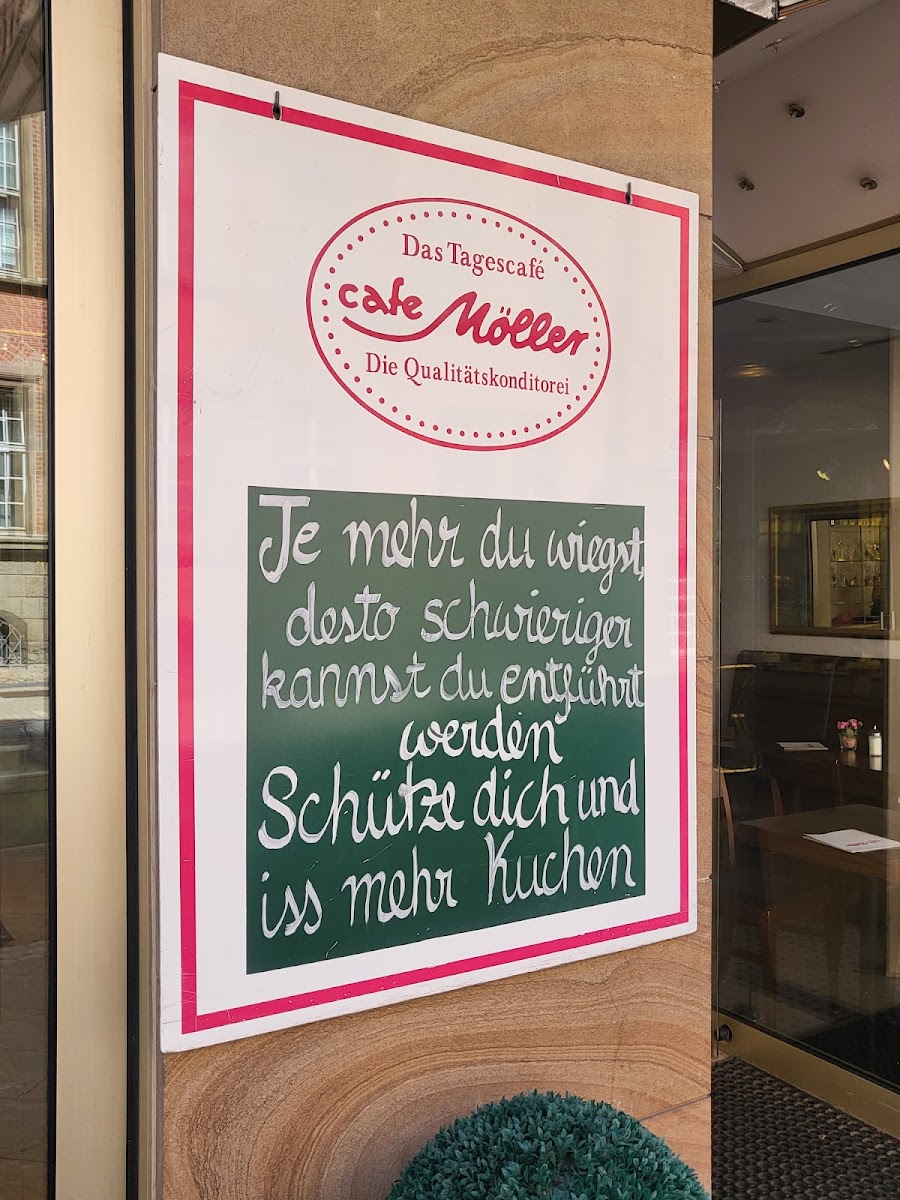 Das Tagescafé
cafe Möller
Die Qualitätskonditorei
Je mehr du wiegst,
desto schwieriger
kannst du entführt
werden
Schütze dich und
iss mehr Kuchen